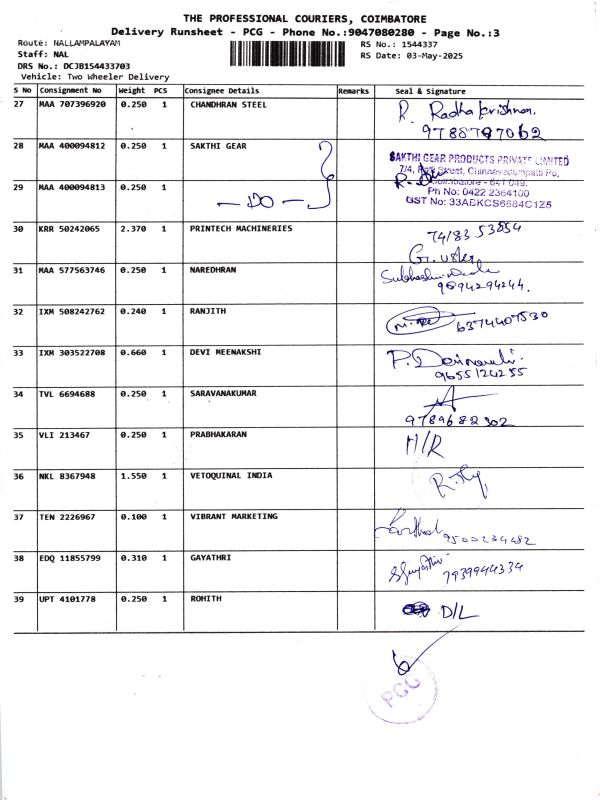 THE PROFESSIONAL COURIERS, COIMBATORE
Delivery Runsheet - PCG - Phone No.:9047080280 - Page No.:3
Route: NALLAMPALAYAM RS No.: 1544337
Staff: NAL RS Date: 03-May-2025
DRS No.: DCJB154433703
Vehicle: Two Wheeler Delivery
S No Consignment No Weight PCS Consignee Details Remarks Seal & Signature
27 MAA 707396920 0.250 1 CHANDHRAN STEEL R. Radhakrishnan.
9788797062
28 MAA 400094812 0.250 1 SAKTHI GEAR
SAKTHI GEAR PRODUCTS PRIVATE LIMITED
7/4, Street, Chinnavedampatti Po,
29 MAA 400094813 0.250 1 Coimbatore - 641 049.
— DO — Ph No: 0422 2364100
GST No: 33ABKCS6684C1Z5
30 KRR 50242065 2.370 1 PRINTECH MACHINERIES 74183 53854
31 MAA 577563746 0.250 1 NAREDHRAN
9594294244.
32 IXM 508242762 0.240 1 RANJITH 6374407530
33 IXM 303522708 0.660 1 DEVI MEENAKSHI
9655124255
34 TVL 6694688 0.250 1 SARAVANAKUMAR
9789682302
35 VLI 213467 0.250 1 PRABHAKARAN H/R
36 NKL 8367948 1.550 1 VETOQUINAL INDIA
37 TEN 2226967 0.100 1 VIBRANT MARKETING
9500234482
38 EDQ 11855799 0.310 1 GAYATHRI
7939944334
39 UPT 4101778 0.250 1 ROHITH D/L
PCG